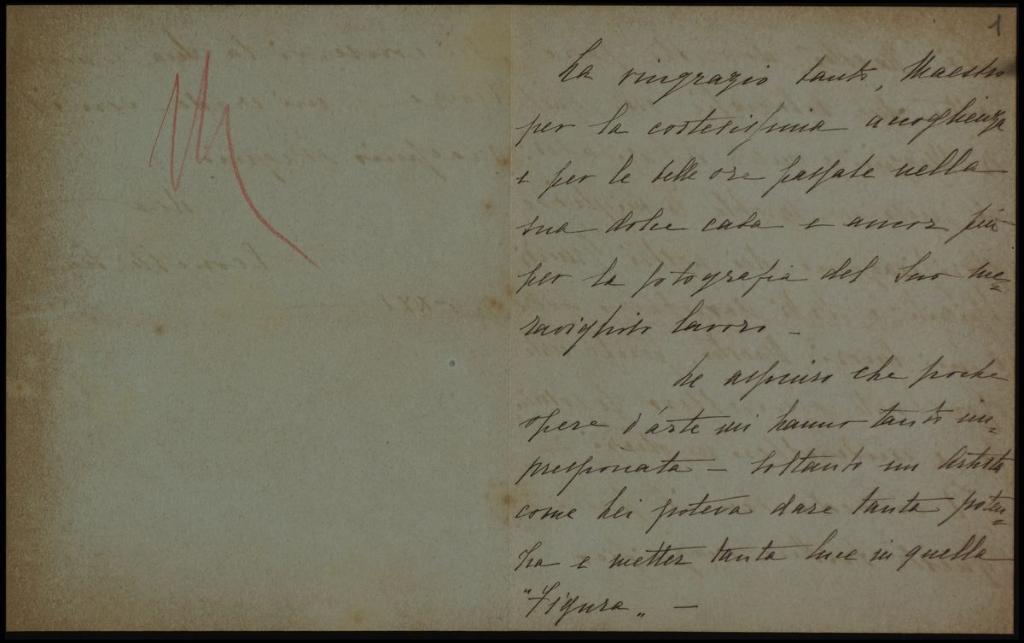 1
La ringrazio tanto, Maestro
per la cortesissima accoglienza
e per le belle ore passate nella
sua dolce casa e ancor più
per la fotografia del Suo me=
raviglioso lavoro –
Le assicuro che poche
opere d'arte mi hanno tanto im=
pressionata – Soltanto un Artista
come Lei poteva dare tanta poten=
za e metter tanta luce in quella
"Figura" –